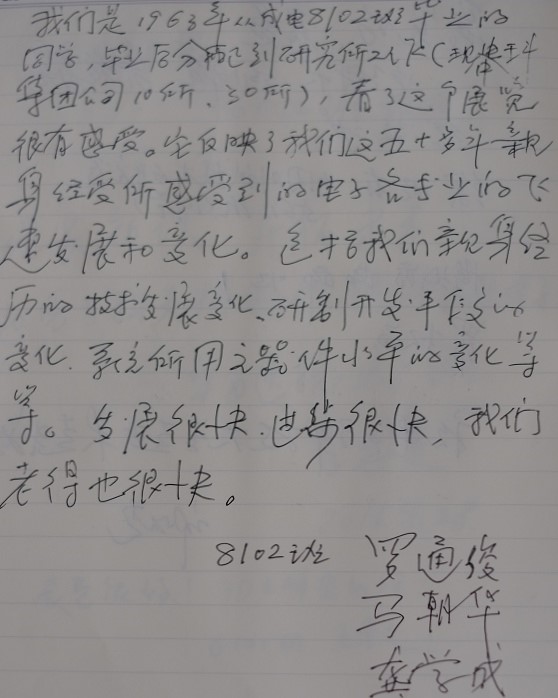 我们是1963年从成电8102班毕业的
同学,毕业后分配到研究所工作(现电科
集团公司10所、30所),看了这个展览
很有感受。它反映了我们这五十多年亲
身经受所感受到的电子各专业的飞
速发展和变化。包括我们亲身经
历的技术发展变化、研制开发手段的
变化、系统所用元器件水平的变化等
等。发展很快,进步很快,我们
老得也很快。
8102班 罗通俊
马朝华
龚学成